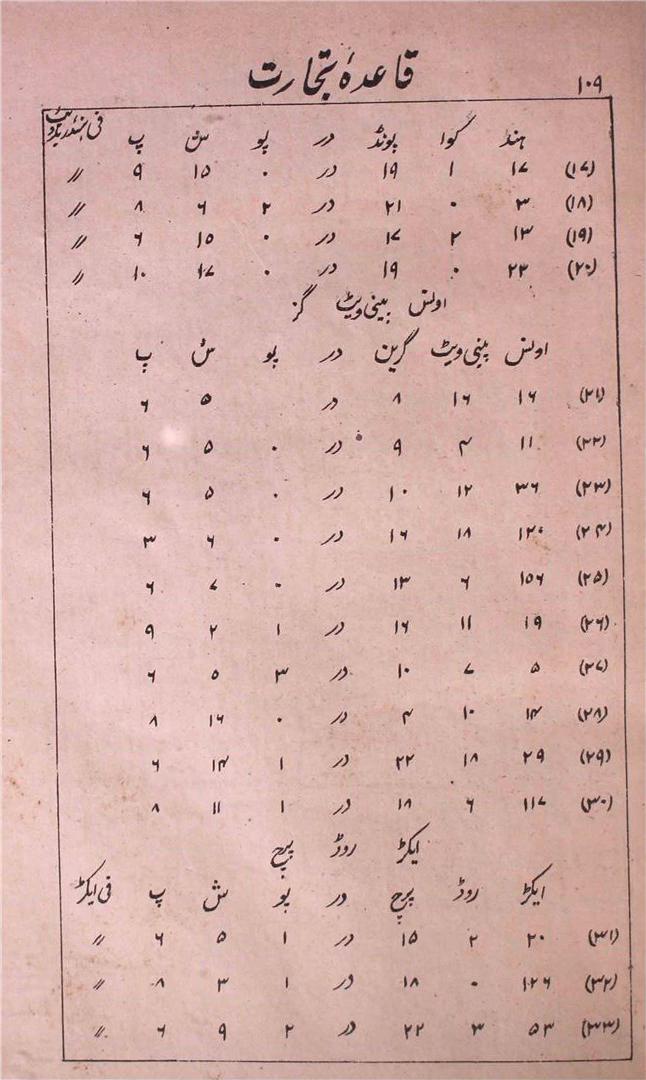 ۱۰۹ قاعدۂ تجارت
ہنڈ گوا پونڈ در پو ش پ فی ہنڈریڈویٹ
(۱۷) ۱۷ ۱ ۱۹ در ۰ ۱۵ ۹ ״
(۱۸) ۳ ۰ ۲۱ در ۲ ۶ ۸ ״
(۱۹) ۱۳ ۲ ۱۷ در ۰ ۱۵ ۶ ״
(۲۰) ۲۳ ۰ ۱۹ در ۰ ۱۷ ۱۰ ״
اونس پینی ویٹ گز
اونس پینی ویٹ گرین در پو ش پ
(۲۱) ۱۶ ۱۶ ۸ در ۵ ۶
(۲۲) ۱۱ ۴ ۹ در ۰ ۵ ۶
(۲۳) ۳۶ ۱۲ ۱۰ در ۰ ۵ ۶
(۲۴) ۱۲۰ ۱۸ ۱۶ در ۰ ۶ ۳
(۲۵) ۱۵۶ ۶ ۱۳ در ۰ ۷ ۶
(۲۶) ۱۹ ۱۱ ۱۶ در ۱ ۲ ۹
(۲۷) ۵ ۷ ۱۰ در ۳ ۵ ۶
(۲۸) ۱۴ ۱۰ ۴ در ۰ ۱۶ ۸
(۲۹) ۲۹ ۱۸ ۲۲ در ۱ ۱۴ ۶
(۳۰) ۱۱۷ ۶ ۱۸ در ۱ ۱۱ ۸
ایکڑ روڈ پرچ
ایکڑ روڈ پرچ در پو ش پ فی ایکڑ
(۳۱) ۲۰ ۲ ۱۵ در ۱ ۵ ۶ ״
(۳۲) ۱۲۶ ۰ ۱۸ در ۱ ۳ ۸ ״
(۳۳) ۵۳ ۳ ۲۲ در ۲ ۹ ۶ ״